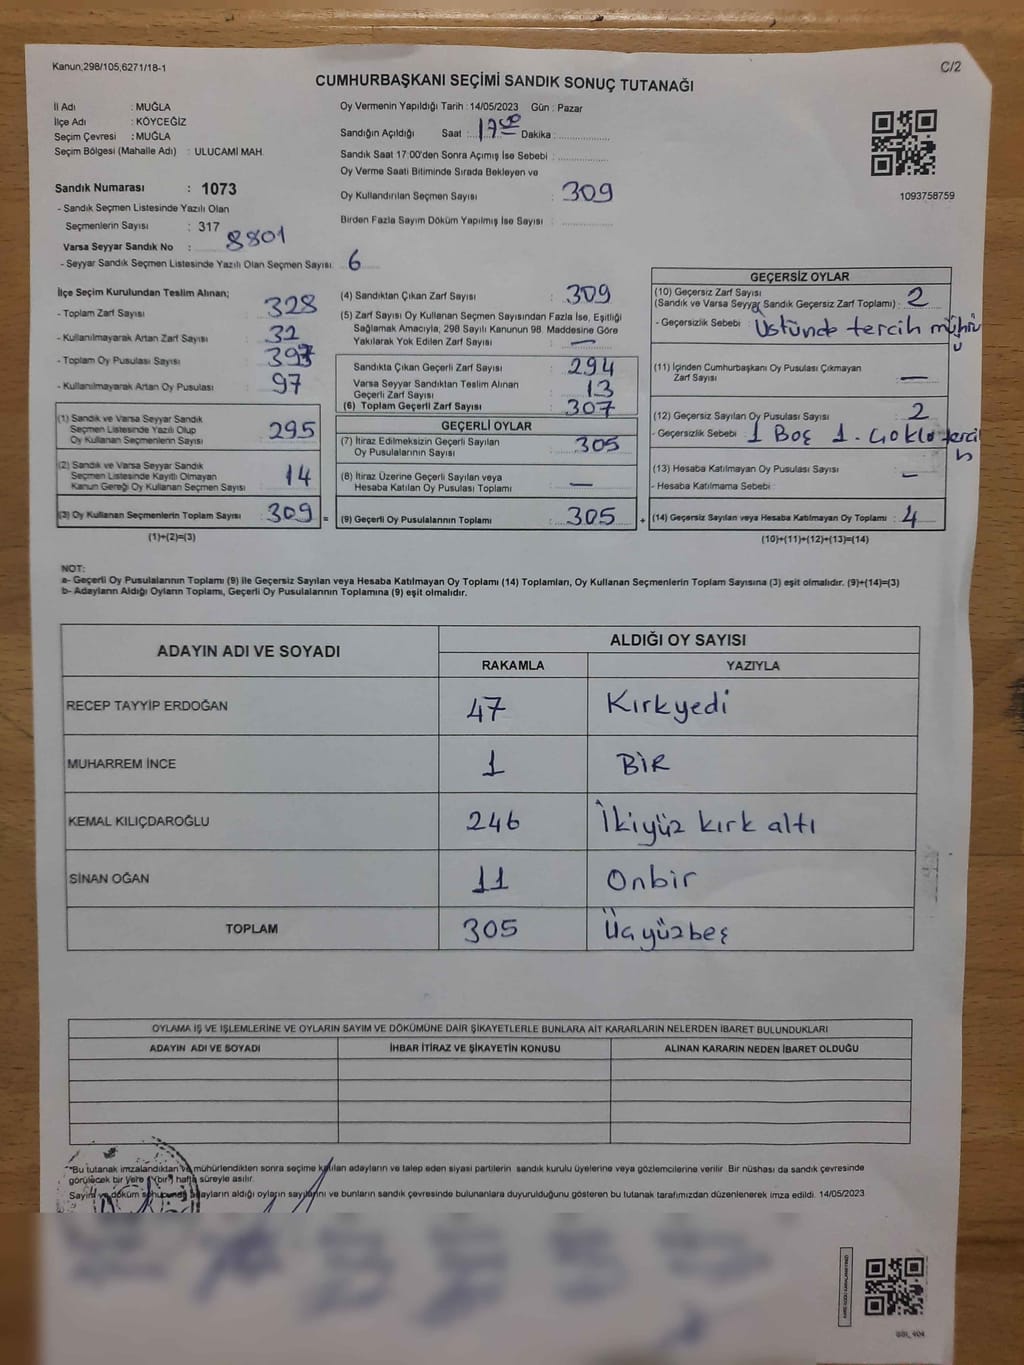 Kanun;298/105,6271/18-1
C/2
CUMHURBAŞKANI SEÇİMİ SANDIK SONUÇ TUTANAĞI
İl Adı : MUĞLA
İlçe Adı : KÖYCEĞİZ
Seçim Çevresi : MUĞLA
Seçim Bölgesi (Mahalle Adı) : ULUCAMİ MAH.
Sandık Numarası : 1073
- Sandık Seçmen Listesinde Yazılı Olan
Seçmenlerin Sayısı : 317
Varsa Seyyar Sandık No : 8801
- Seyyar Sandık Seçmen Listesinde Yazılı Olan Seçmen Sayısı: 6
Oy Vermenin Yapıldığı Tarih : 14/05/2023 Gün : Pazar
Sandığın Açıldığı Saat : 17:00 Dakika :
Sandık Saat 17:00'den Sonra Açımış İse Sebebi :
Oy Verme Saati Bitiminde Sırada Bekleyen ve
Oy Kullandırılan Seçmen Sayısı : 309
Birden Fazla Sayım Döküm Yapılmış İse Sayısı :
1093758759
İlçe Seçim Kurulundan Teslim Alınan;
- Toplam Zarf Sayısı : 328
- Kullanılmayarak Artan Zarf Sayısı : 32
- Toplam Oy Pusulası Sayısı : 397
- Kullanılmayarak Artan Oy Pusulası : 97
(1) Sandık ve Varsa Seyyar Sandık
Seçmen Listesinde Yazılı Olup
Oy Kullanan Seçmenlerin Sayısı : 295
(2) Sandık ve Varsa Seyyar Sandık
Seçmen Listesinde Kayıtlı Olmayan
Kanun Gereği Oy Kullanan Seçmen Sayısı : 14
(3) Oy Kullanan Seçmenlerin Toplam Sayısı : 309 =
(1)+(2)=(3)
(4) Sandıktan Çıkan Zarf Sayısı : 309
(5) Zarf Sayısı Oy Kullanan Seçmen Sayısından Fazla İse, Eşitliği
Sağlamak Amacıyla, 298 Sayılı Kanunun 98. Maddesine Göre
Yakılarak Yok Edilen Zarf Sayısı : —
Sandıkta Çıkan Geçerli Zarf Sayısı : 294
Varsa Seyyar Sandıktan Teslim Alınan
Geçerli Zarf Sayısı : 13
(6) Toplam Geçerli Zarf Sayısı : 307
GEÇERLİ OYLAR
(7) İtiraz Edilmeksizin Geçerli Sayılan
Oy Pusulalarının Sayısı : 305
(8) İtiraz Üzerine Geçerli Sayılan veya
Hesaba Katılan Oy Pusulası Toplamı : —
(9) Geçerli Oy Pusulalarının Toplamı : 305 +
GEÇERSİZ OYLAR
(10) Geçersiz Zarf Sayısı
(Sandık ve Varsa Seyyar Sandık Geçersiz Zarf Toplamı) : 2
- Geçersizlik Sebebi : Üstünde tercih mührü
(11) İçinden Cumhurbaşkanı Oy Pusulası Çıkmayan
Zarf Sayısı : —
(12) Geçersiz Sayılan Oy Pusulası Sayısı : 2
- Geçersizlik Sebebi : 1 Boş 1. Çoklo tercih
(13) Hesaba Katılmayan Oy Pusulası Sayısı : —
- Hesaba Katılmama Sebebi :
(14) Geçersiz Sayılan veya Hesaba Katılmayan Oy Toplamı : 4
(10)+(11)+(12)+(13)=(14)
NOT:
a- Geçerli Oy Pusulalarının Toplamı (9) ile Geçersiz Sayılan veya Hesaba Katılmayan Oy Toplamı (14) Toplamları, Oy Kullanan Seçmenlerin Toplam Sayısına (3) eşit olmalıdır. (9)+(14)=(3)
b- Adayların Aldığı Oyların Toplamı, Geçerli Oy Pusulalarının Toplamına (9) eşit olmalıdır.
ADAYIN ADI VE SOYADI
ALDIĞI OY SAYISI
RAKAMLA YAZIYLA
RECEP TAYYİP ERDOĞAN 47 Kırkyedi
MUHARREM İNCE 1 BİR
KEMAL KILIÇDAROĞLU 246 İkiyüz kırk altı
SİNAN OĞAN 11 Onbir
TOPLAM 305 Üçyüzbeş
OYLAMA İŞ VE İŞLEMLERİNE VE OYLARIN SAYIM VE DÖKÜMÜNE DAİR ŞİKAYETLERLE BUNLARA AİT KARARLARIN NELERDEN İBARET BULUNDUKLARI
ADAYIN ADI VE SOYADI İHBAR İTİRAZ VE ŞİKAYETİN KONUSU ALINAN KARARIN NEDEN İBARET OLDUĞU
*Bu tutanak imzalandıktan ve mühürlendikten sonra seçime katılan adayların ve talep eden siyasi partilerin sandık kurulu üyelerine veya gözlemcilerine verilir. Bir nüshası da sandık çevresinde
görülecek bir yere (bir) hafta süreyle asılır.
Sayım ve döküm sonucunda adayların aldığı oyların sayılarını ve bunların sandık çevresinde bulunanlara duyurulduğunu gösteren bu tutanak tarafımızdan düzenlenerek imza edildi. 14/05/2023